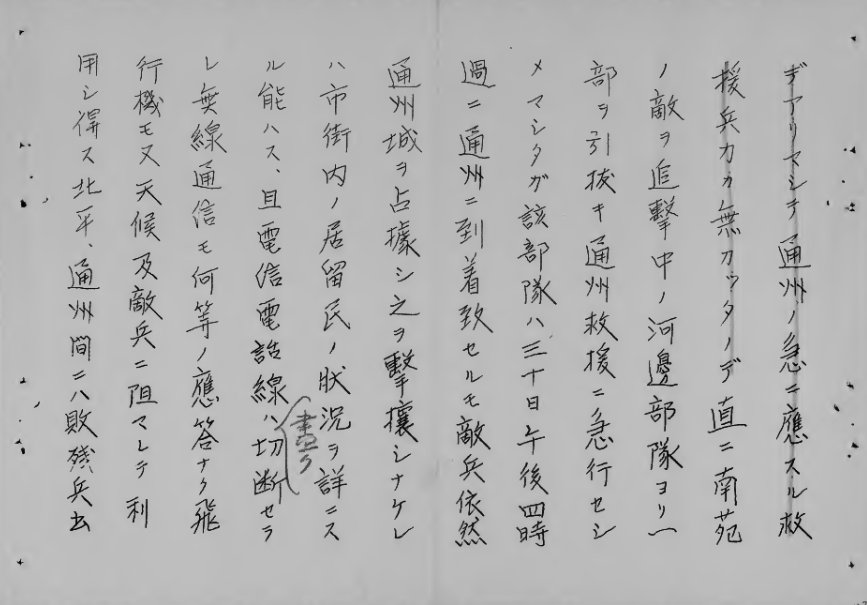 デアリマシテ通州ノ急ニ應スル救
援兵力カ無カッタノデ直ニ南苑
ノ敵ヲ追擊中ノ河邊部隊ヨリ一
部ヲ引抜キ通州救援ニ急行セシ
メマシタガ該部隊ハ三十日午後四時
過ニ通州ニ到着致セルモ敵兵依然
通州城ヲ占據シ之ヲ擊攘シナケレ
ハ市街内ノ居留民ノ狀況ヲ詳ニス
ル能ハス、且電信電話線ハ切断セラ
レ無線通信モ何等ノ應答ナク飛
行機モ又天候及敵兵ニ阻マレテ利
用シ得ス北平、通州間ニハ敗残兵出